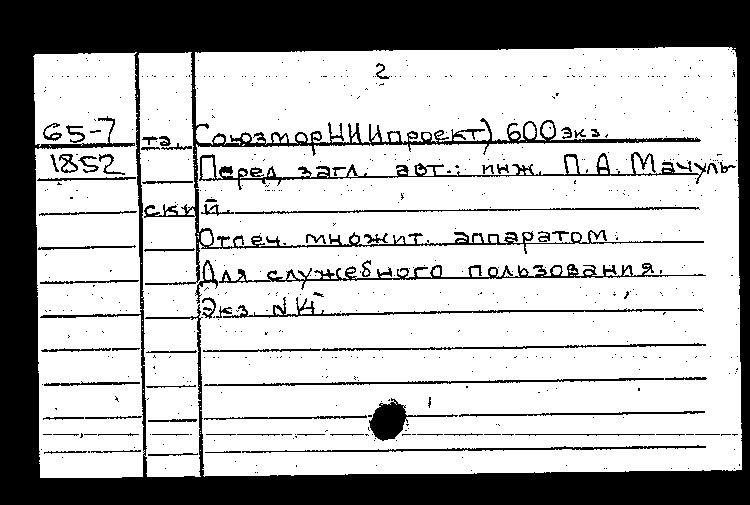 2
65-7 та. СоюзморНИИпроект) 600 экз.
1852 Перед загл. авт.: инж. П.А. Мачуль-
ский.
Отпеч. множит. аппаратом.
Для служебного пользования.
Экз. N